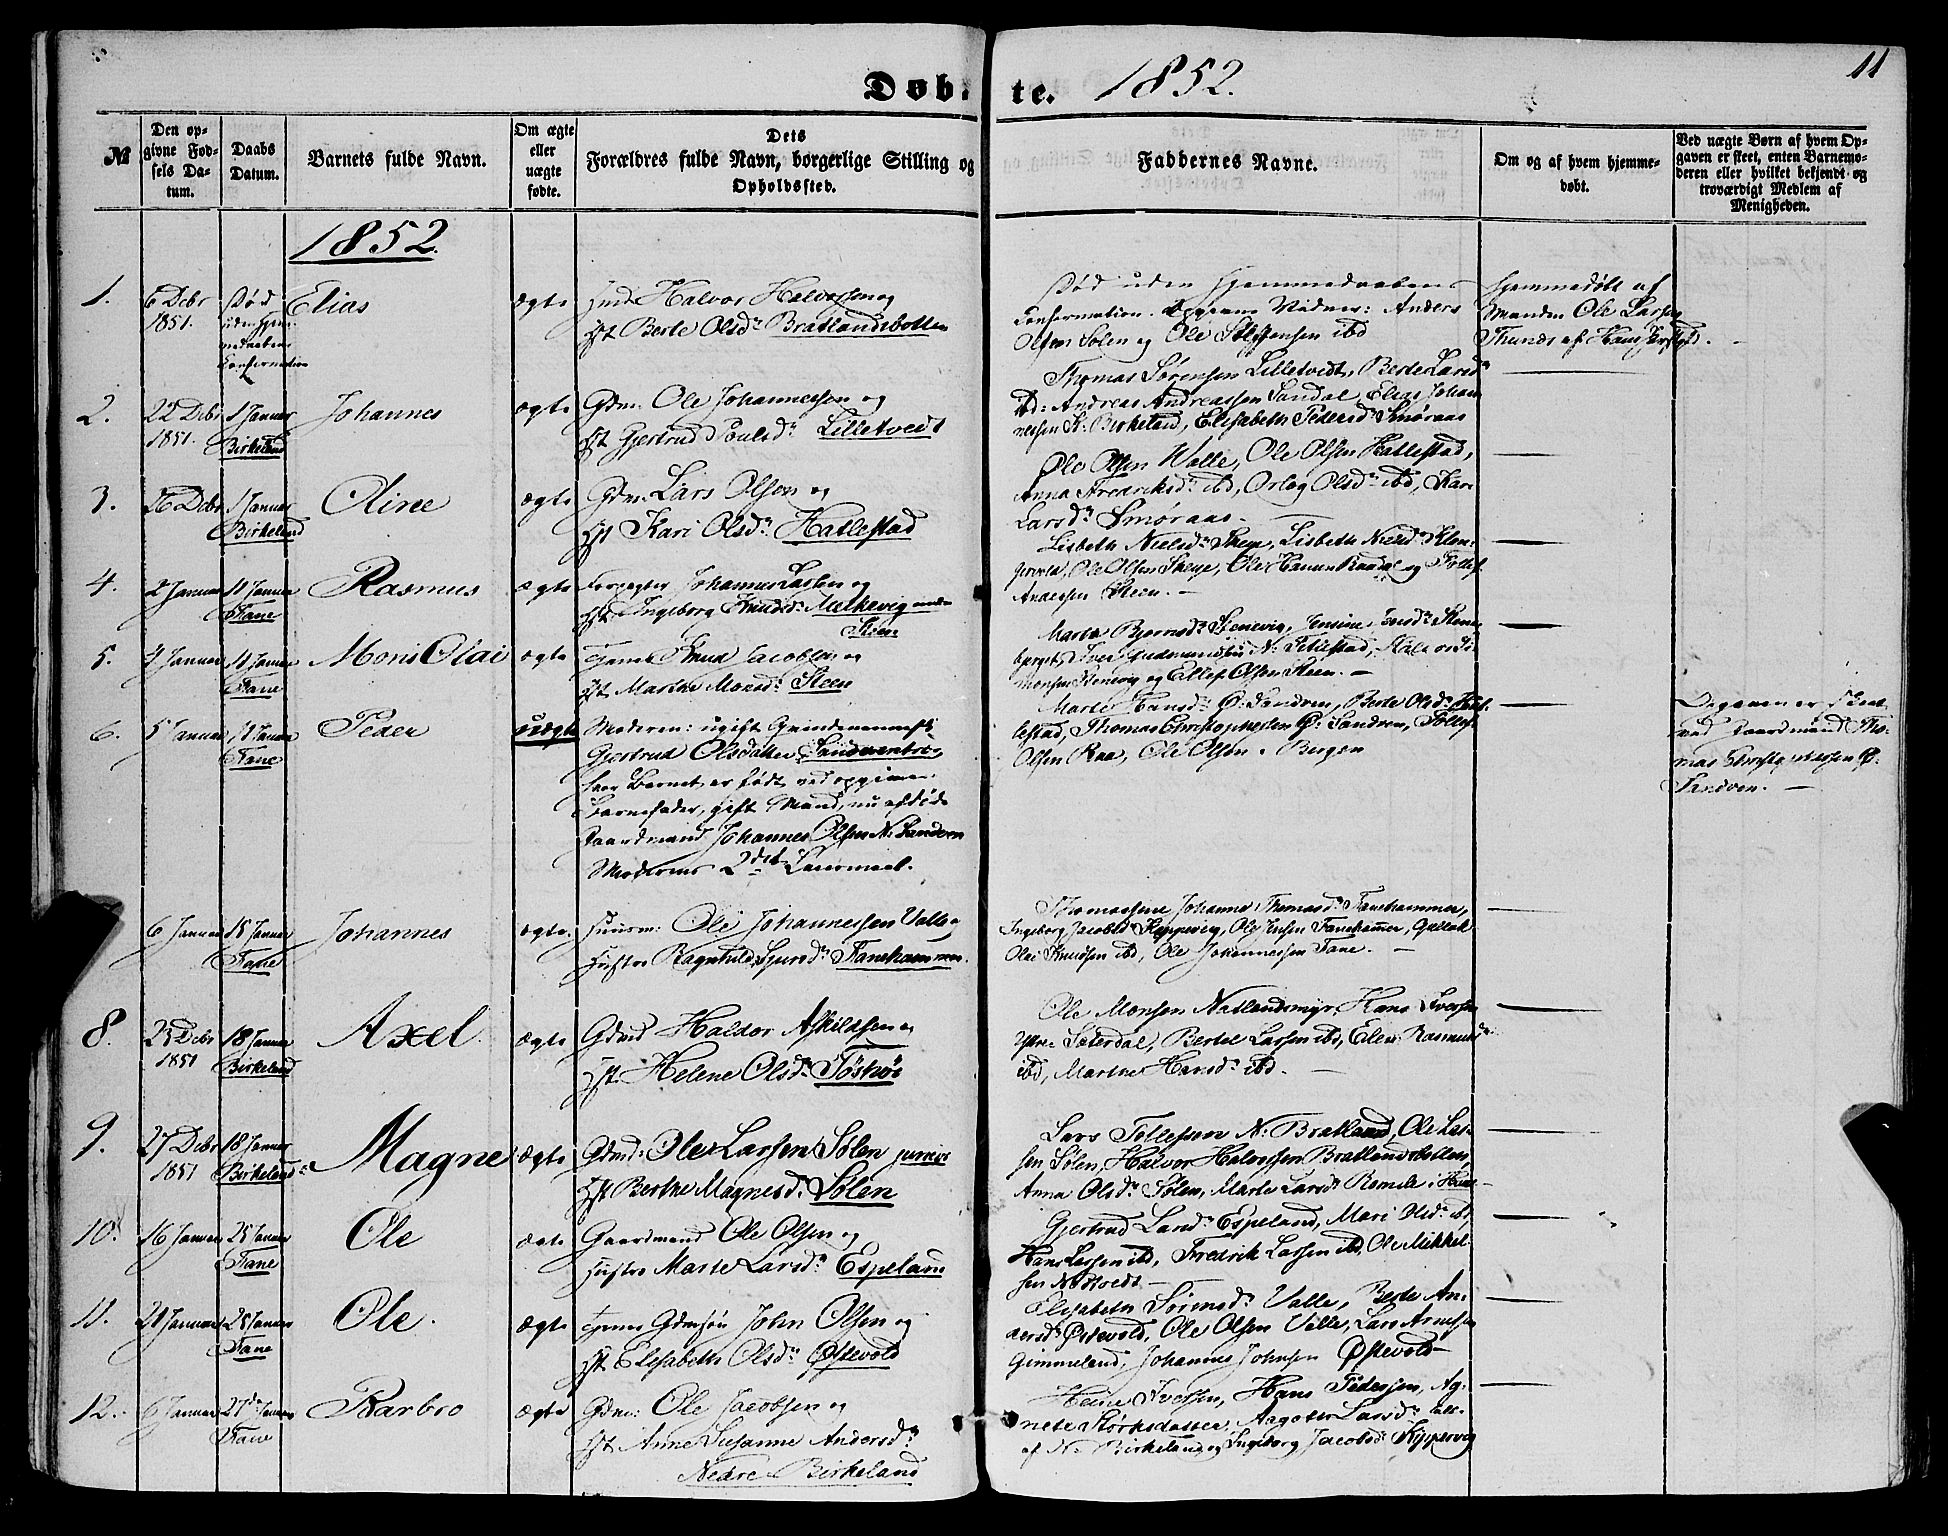 11
Døbte. 1852.
№
Den op-
givne Fød-
sels Da-
tum.
Daabs
Datum.
Barnets fulde Navn.
Om ægte
eller
uægte
fødte.
Dets
Forældres fulde Navn, borgerlige Stilling og
Opholdssted.
Faddernes Navne.
Om og af hvem hjemme-
døbt.
Ved uægte Børn af hvem Op-
gaven er skeet, enten Barnemo-
deren eller hvilket bekjendt og
troværdigt Medlem af
Menigheden.
1852.
1.
6 Debr
1851.
Død
uden Hjem-
medaabens
Confirmation
Elias
ægte
Halvor Halvorsen og
Berte Olsdr Bratlandsbotten
Død uden Hjemmedaabens
Confirmation. Vidner: Anders
Olsen Sølen og Ole ibd
Hjemmedøbt af
Manden Ole Larsen
2.
22 Debr
1851.
1 Januar
Birkeland
Johannes
ægte
Gdm. Ole Johannessen og
Hst Gjertrud Poulsdr Lilletvedt
Thomas Sørensen Lilletvedt, Berte Larsdr
ibd: Andreas Andreassen Sandal, Elias Johan-
nessen St. Birkeland, Elisabeth Pedersdr Smøraas
3.
26 Debr
1 Januar
Birkeland
Oline
ægte
Gdm. Lars Olsen og
Hst Kari Olsdr Hatlestad
Ole Olsen Walle, Ole Olsen Hatlestad,
Anna Fredriksdr ibd, Orlog Olsdr ibd, Kari
Larsdr Smøraas
4.
2 Januar
11 Januar
Fane
Rasmus
ægte
Forpagter Johannes Lassen og
Hst Ingeborg Knudsdr Milkevig under
Steen
Lisbeth Nielsdr Skeye, Lisbeth Nielsdr
Ole Olsen Skeye, Ole Hansen Raadal og Tollef
Andersen Steen.
5.
4 Januar
11 Januar
Fane
Mons Olai
ægte
Tjener Knud Jacobsen og
Hst Marthe Monsdr Steen
Marta Bjørnsdr Stenevig, Jensine
Iver Gudmundsen N. Titlestad,
Stenevig og Ellef Olsen Steen.
6.
5 Januar
11 Januar
Fane
Peder
uægte
Moderen: ugift
Gjertrud Olsdatter
hvor Barnet er født, ved opgiven
Barnefader, gift Mand, nu afdøde
Gaardmand Johannes Olsen N. Sandven
Moderens 2det Leiermaal.
Marte Hansdr Ø. Sandven, Berte Olsdr Titt-
lestad, Thomas Christophersen Ø. Sandven, Tollef
Olsen Raa, Ole Olsen Bergen
Opgaven er skeet
ved Gaardmand Tho-
mas Christophersen Ø.
Sandven.
6 Januar
18 Januar
Fane
Johannes
ægte
Huusm: Ole Johannessen Valle og
Hustro Ragnhild Sjursdr Fanehammer.
Thomassine Johanne Thomasdr Fanehammer,
Ingeborg Jacobsdr Skjppevig, Ole Jensen Fanehammer, Gjellak
Olai Knudsen ibd, Ole Johannessen Fane.
8.
23 Debr
1851
18 Januar
Birkeland
Axel.
ægte
Gdmd Haldor Askildsen og
Hst. Helene Olsdr Tøskør
Ole Monsen Natlandsmyr, Hans Iversen
Ytre Søterdal, Bertel Larsen ibd, Elen Rasmusdr
ibd, Marthe Hansdr ibd.
9.
27 Debr
1851
18 Januar
Birkeland
Magne
ægte
Gdmd: Ole Larsen Sølen junior
Hst Berthe Magnesdr Sølen
Lars Tollefsen N. Bratland, Ole Lar-
sen Sølen, Halvor Halvorsen Bratlandsbotten,
Anna Olsdr Sølen, Marte Larsdr
10.
16 Januar
25 Januar
Fane
Ole
ægte
Gaardmand Ole Olsen og
Hustro Marte Larsdr Espeland
Gjertrud Larsdr Espeland, Mari Olsdr ibd,
Hans Larsen ibd, Fredrik Larsen ibd, Ole Mikkel-
sen Nøttvedt
11.
21 Januar
25 Januar
Fane
Ole.
ægte
Tjener Gdmsøn John Olsen og
Hst. Elisabeth Olsdr Østevold
Elisabeth Sørensdr Valle, Berte An-
dersdr Østevold, Ole Olsen Valle, Lars Arnesen
Gimmeland, Johannes Johnsen Østevold
12.
6 Januar
27de Januar
Fane
Barbro
ægte
Gdm: Ole Jacobsen og
Hst Anne Susanne Andersdr
Nedre Birkeland
Heine Iversen, Hans Pedersen, Ag-
nete Størksdatter, Aagote Larsdr alle
af N. Birkeland og Ingeborg Jacobsdr Skjppevig